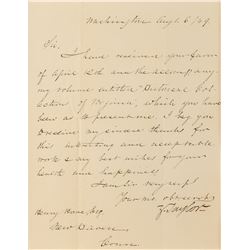 Washington Augt. 6 /49
Sir,
I have received your favor
of April 12th and the accompany-
ing volume entitled Historical Col-
lections of Virginia, which you have
been so to present me. I beg you
to receive my sincere thanks for
this interesting and acceptable
work & my best wishes for your
health and happiness
I am Sir very respy
Your mo. obt servt
Z. Taylor
Henry Howe, Esq
New Haven
Conn.